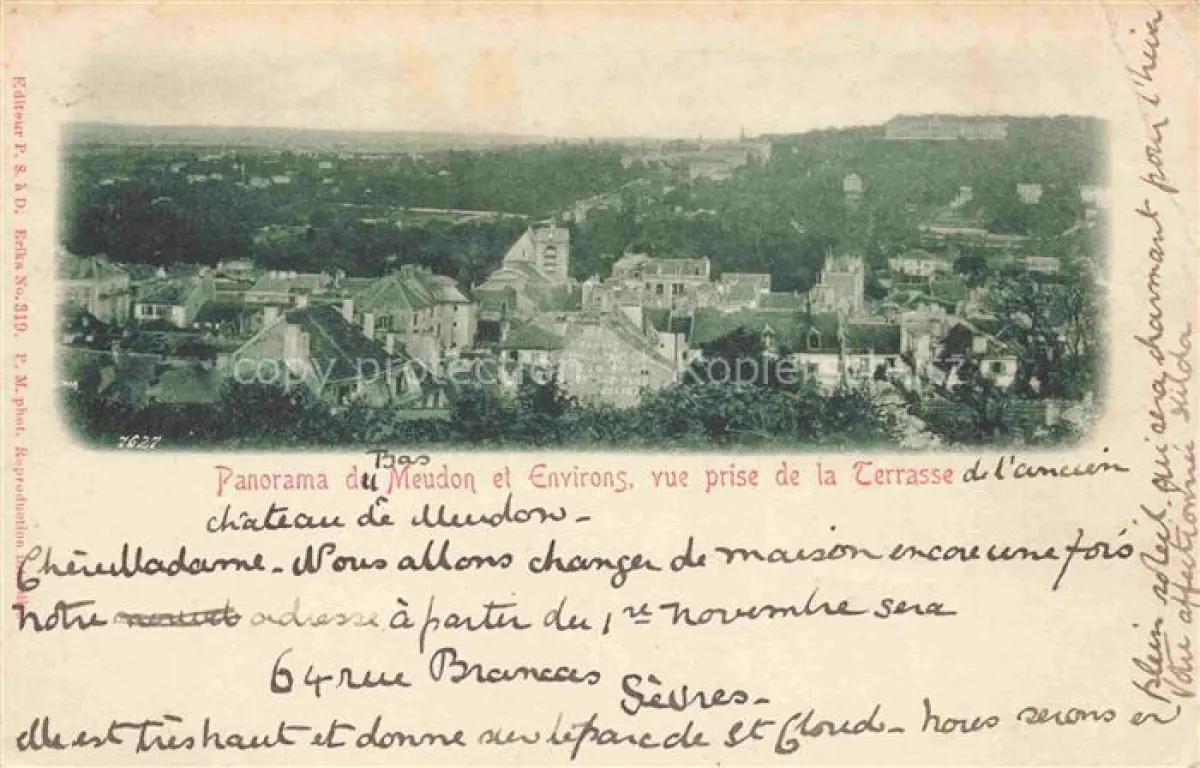 Editeur P. S. à D. Erika No. 319. P. M. phot. Reproduction
copy protection - Kopierschutz
7627
Panorama de Meudon et Environs, vue prise de la Terrasse de l'ancien
du Bas
château de Meudon -
Chère Madame - Nous allons changer de maison encore une fois
notre adresse à partir du 1re novembre sera
64 rue Brancas
Sèvres -
elle est très haut et donne sur le parc de St Cloud - nous serons en
plein soleil, qui sera charmant pour l'hiver
Votre affectionnée